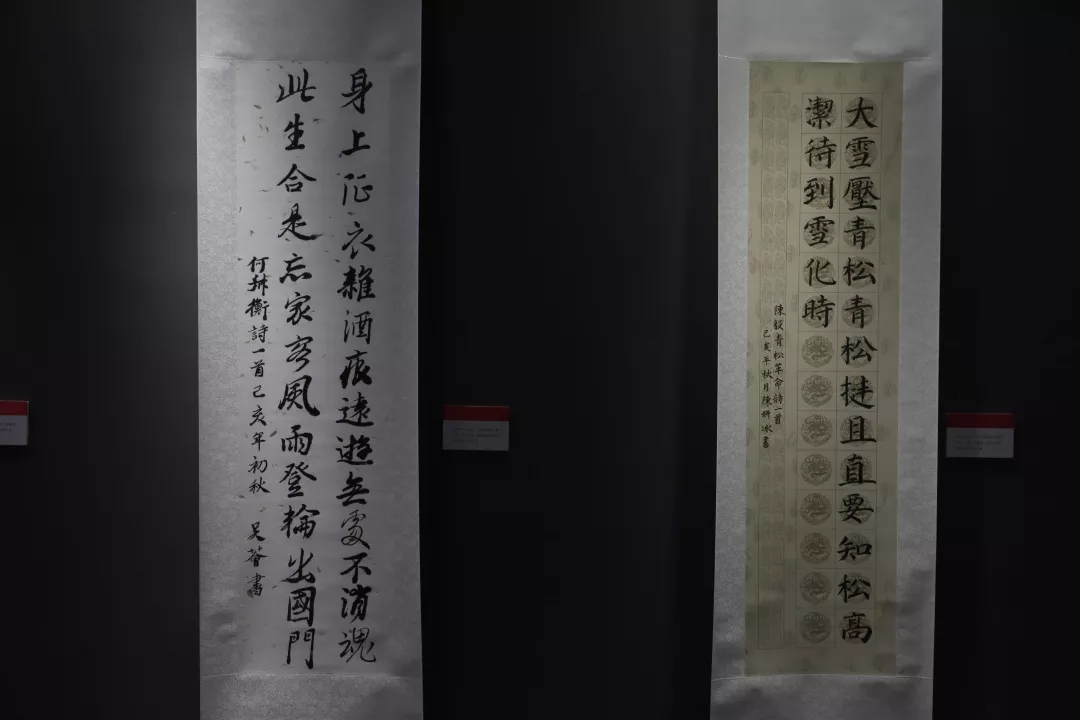 身上征衣雜酒痕遠遊無處不消魂
此生合是忘家客風雨登輪出國門
何叔衡詩一首己亥年初秋 吴薈書
大雪壓青松青松挺且直要知松高
潔待到雪化時
陳毅青松革命詩一首
己亥年秋月陳冰書